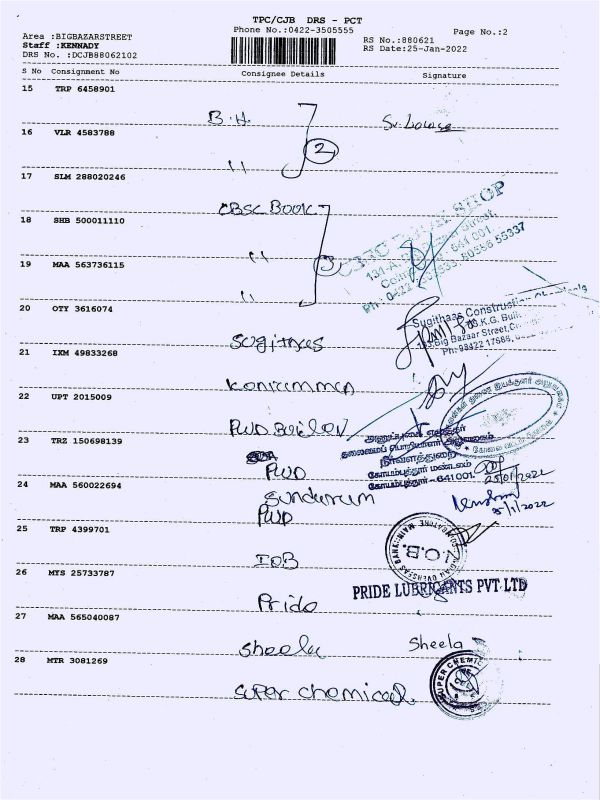 TPC/CJB DRS - PCT
Phone No.:0422-3505555
Page No.:2
Area :BIGBAZARSTREET
Staff :KENNADY
DRS No. :DCJB88062102
RS No.:880621
RS Date:25-Jan-2022
S No Consignment No Consignee Details Signature
15 TRP 6458901
B.H.
16 VLR 4583788
2
"
17 SLM 288020246
CBSC Book
18 SHB 500011110
"
19 MAA 563736115
3
"
20 OTY 3616074
Sugithaas Construction Chemicals
K.G. Buil
Big Bazaar Street,
Ph: 98422 17586,
21 IXM 49833268
22 UPT 2015009
PWD
23 TRZ 150698139
PWD
தலைமைப் பொறியாளர் அலுவலகம்
நீர்வளத்துறை
கோயம்புத்தூர் மண்டலம்
கோயம்புத்தூர் - 641001.
25/01/2022
24 MAA 560022694
Sundaram
PWD
25/1/2022
25 TRP 4399701
IOB
I.O.B.
INDIAN OVERSEAS BANK
26 MYS 25733787
PRIDE LUBRICANTS PVT LTD
Prido
27 MAA 565040087
Sheela
Sheela
28 MTR 3081269
SUPER CHEMIC
Super chemical